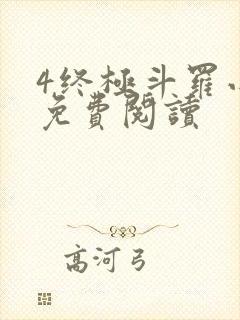 4终極斗羅
免費閱讀
高河弓